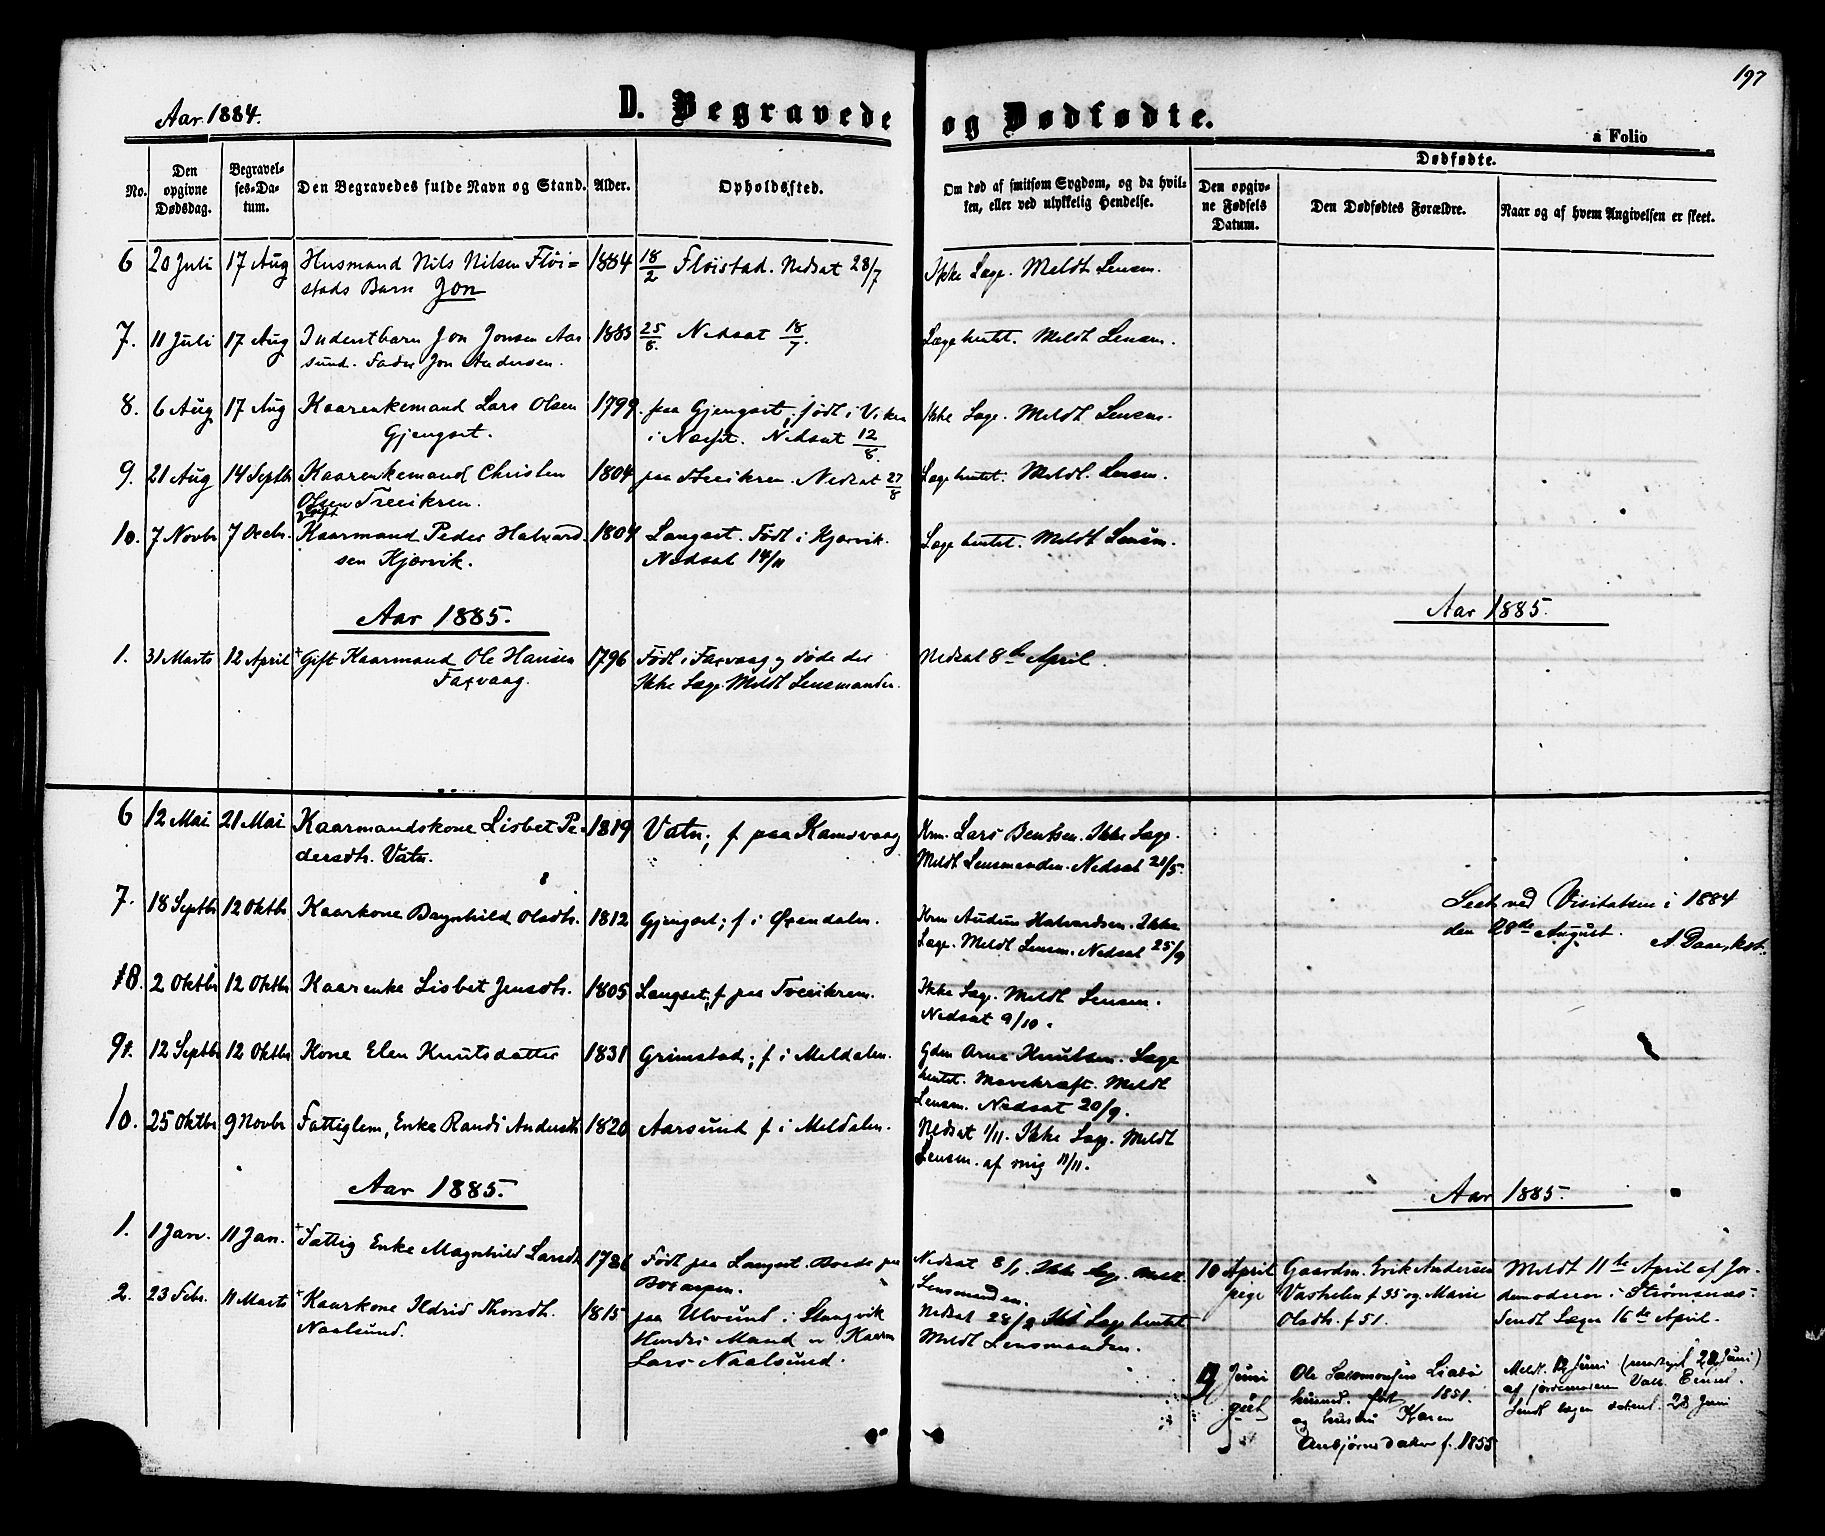 197
Aar 1884.
D. Begravede og Dødfødte.
a Folio
No.
Den opgivne Dødsdag.
Begravelses-Datum.
Den Begravedes fulde Navn og Stand.
Alder.
Opholdssted.
Om død af smitsom Sygdom, og da hvilken, eller ved ulykkelig Hendelse.
Dødfødte.
Den opgivne Fødsels Datum.
Den Dødfødtes Forældre.
Naar og af hvem Angivelsen er skeet.
6 20 Juli 17 Aug Husmand Nils Nilsen Fløi- 1884 18/2 Fløistad. Nedsat 28/7 Ikke Læge. Meldt Lensm.
stads Barn Jon
7. 11 Juli 17 Aug Inderstbarn Jon Jonsen Aar- 1883 25/6. Nedsat 18/7. Læge hentet. Meldt Lensm.
sund. Fader Jon Andersen.
8. 6 Aug 17 Aug Kaarenkemand Lars Olsen 1799. paa Gjengset; født i Viken Ikke Læge. Meldt Lensm.
Gjengset. i Næset. Nedsat 12/8.
9. 21 Aug 14 Septbr Kaarenkemand Christen 1804 paa Treeikren. Nedsat 27/8 Læge hentet. Meldt. Lensm.
Olsen Treeikrem.
gift
10. 7 Novbr 7 Decbr. Kaarmand Peder Halvard- 1804 Langset. Født i Kjørvik. Læge hentet. Meldt Lensm.
sen Kjørvik. Nedsat 14/11
Aar 1885. Aar 1885.
1. 31 Marts 12 April + Gift Kaarmand Ole Hansen 1796 Født i Faxvaag og døde der Nedsat 8de April.
Faxvaag. Ikke Læge. Meldt Lensmanden.
6 12 Mai 21 Mai Kaarmandskone Lisbet Pe- 1819 Vatn; f paa Kamsvaag Krm. Lars Bentsen. Ikke Læge.
dersdtr. Vatn. Meldt Lensmanden. Nedsat 21/5.
7. 18 Septbr 12 Oktbr Kaarkone Bagnhild Olsdtr. 1812 Gjengset; f i Øxendalen. Krm Audun Halvardsen. Ikke
Læge. Meldt Lensm. Nedsat 25/9
Seet ved Visitatsen i 1884
den 28de August. A. Daae, kst.
8. 2 Oktbr 12 Oktbr Kaarenke Lisbet Jensdtr. 1805 Langset; f paa Treeikrem. Ikke Læge. Meldt Lensm.
Nedsat 9/10.
9. 12 Septbr 12 Oktbr Kone Elen Knutsdatter 1831 Grimstad; f i Meldalen. Gdm Arne Knutsen. Læge
hentet. Mavekræft. Meldt
Lensm. Nedsat 20/9.
10. 25 Oktbr 9 Novbr Fattiglem, Enke Randi Andersdtr 1820 Aarsund f i Meldalen. Nedsat 1/11. Ikke Læge. Meldt
Lensm. af mig 11/11.
Aar 1885. Aar 1885.
1. 1 Jan. 11 Jan. + Fattig Enke Magnhild Larsdtr 1786 Født paa Langset. Boede paa Nedsat 8/1. Ikke Læge. Meldt
Boxaspen. Lensmanden.
2. 23 Febr. 11 Marts + Kaarkone Ildrid Thorsdtr. 1815 paa Ulvund i Stangvik Nedsat 28/2 Læge hentet
Naalsund. Hendes Mand er Kaarm Meldt Lensmanden.
Lars Naalsund.
10 April Gaardm. Erik Andersen Meldt 11te April af Jor-
pige Vasholm f 55 og Marie demoderen i Strømsnæs.
Olsdtr. f 51. Sendt Lægen 16te April.
Juni Ole Salomonsen Liabø Meldt 12 Juni
gut husmd. født 1851. af jordemoderen
og hustru Karen Sendt lægen 22 Juni
Anbjørnsdatter f. 1855